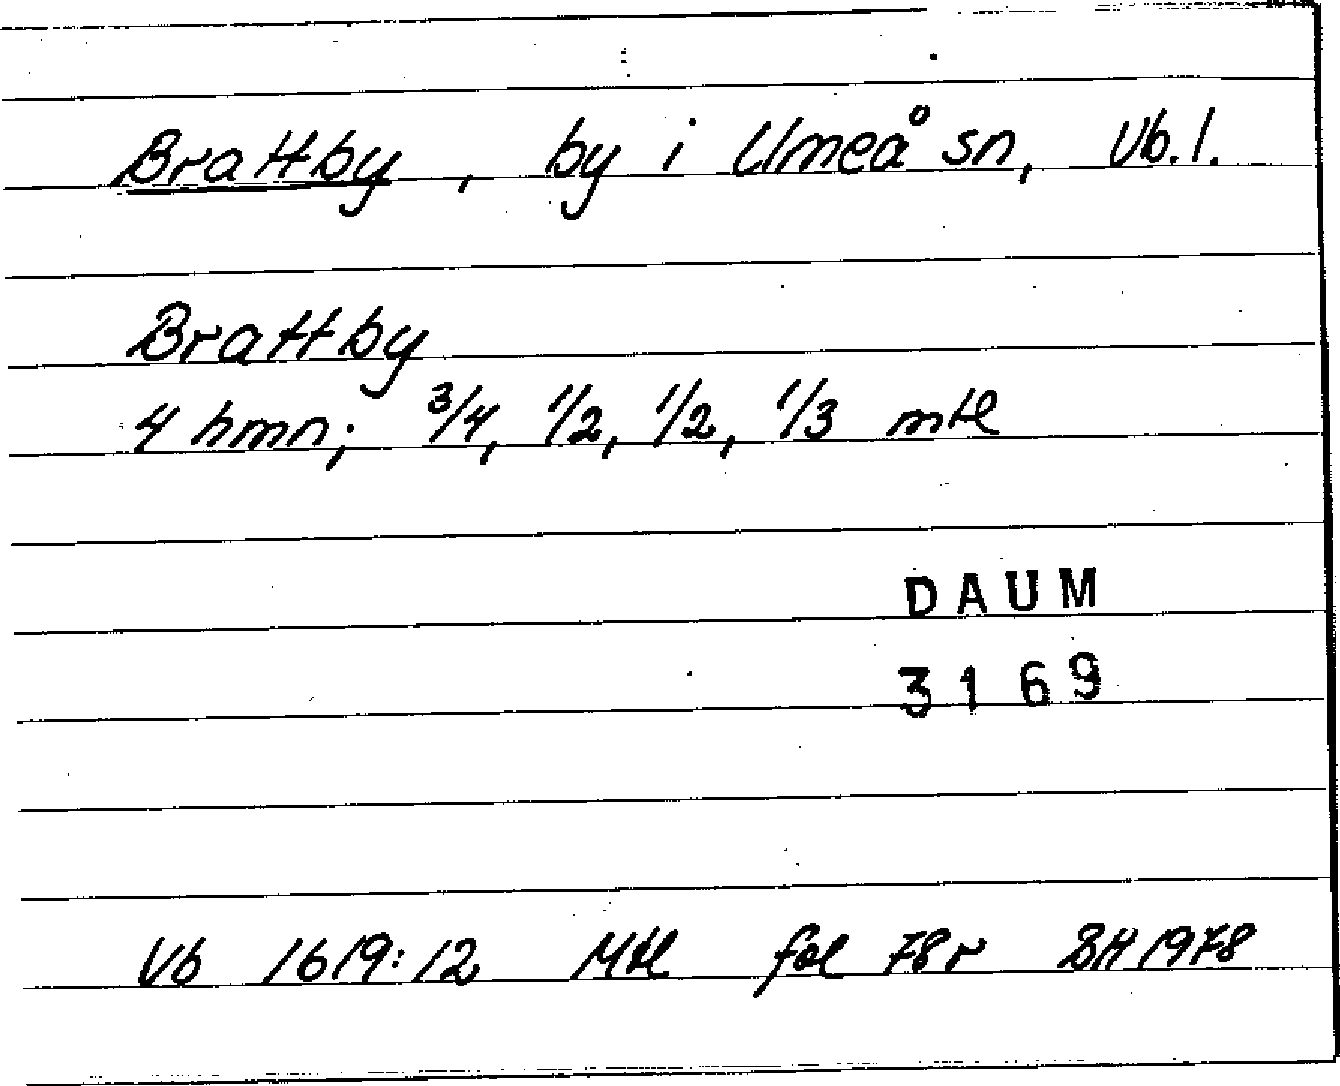 Brattby, by i Umeå sn, Vb.l.
Brattby
4 hmn; 3/4, 1/2, 1/2, 1/3 mtl
DAUM
3169
Vb 1619:12 Mtl fol 78r BH 1978